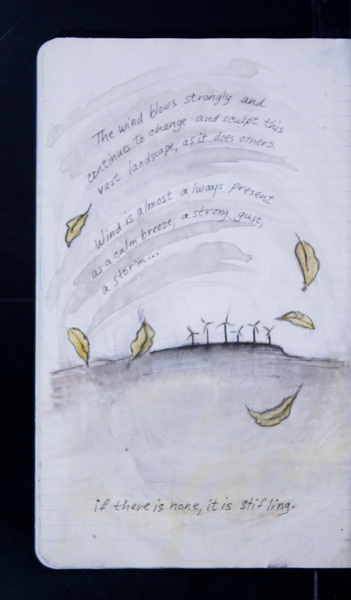 The wind blows strongly and
continues to change and sculpt this
vast landscape, as it does others.
Wind is almost always present
as a calm breeze, a strong gust,
a storm...
if there is none, it is stifling.